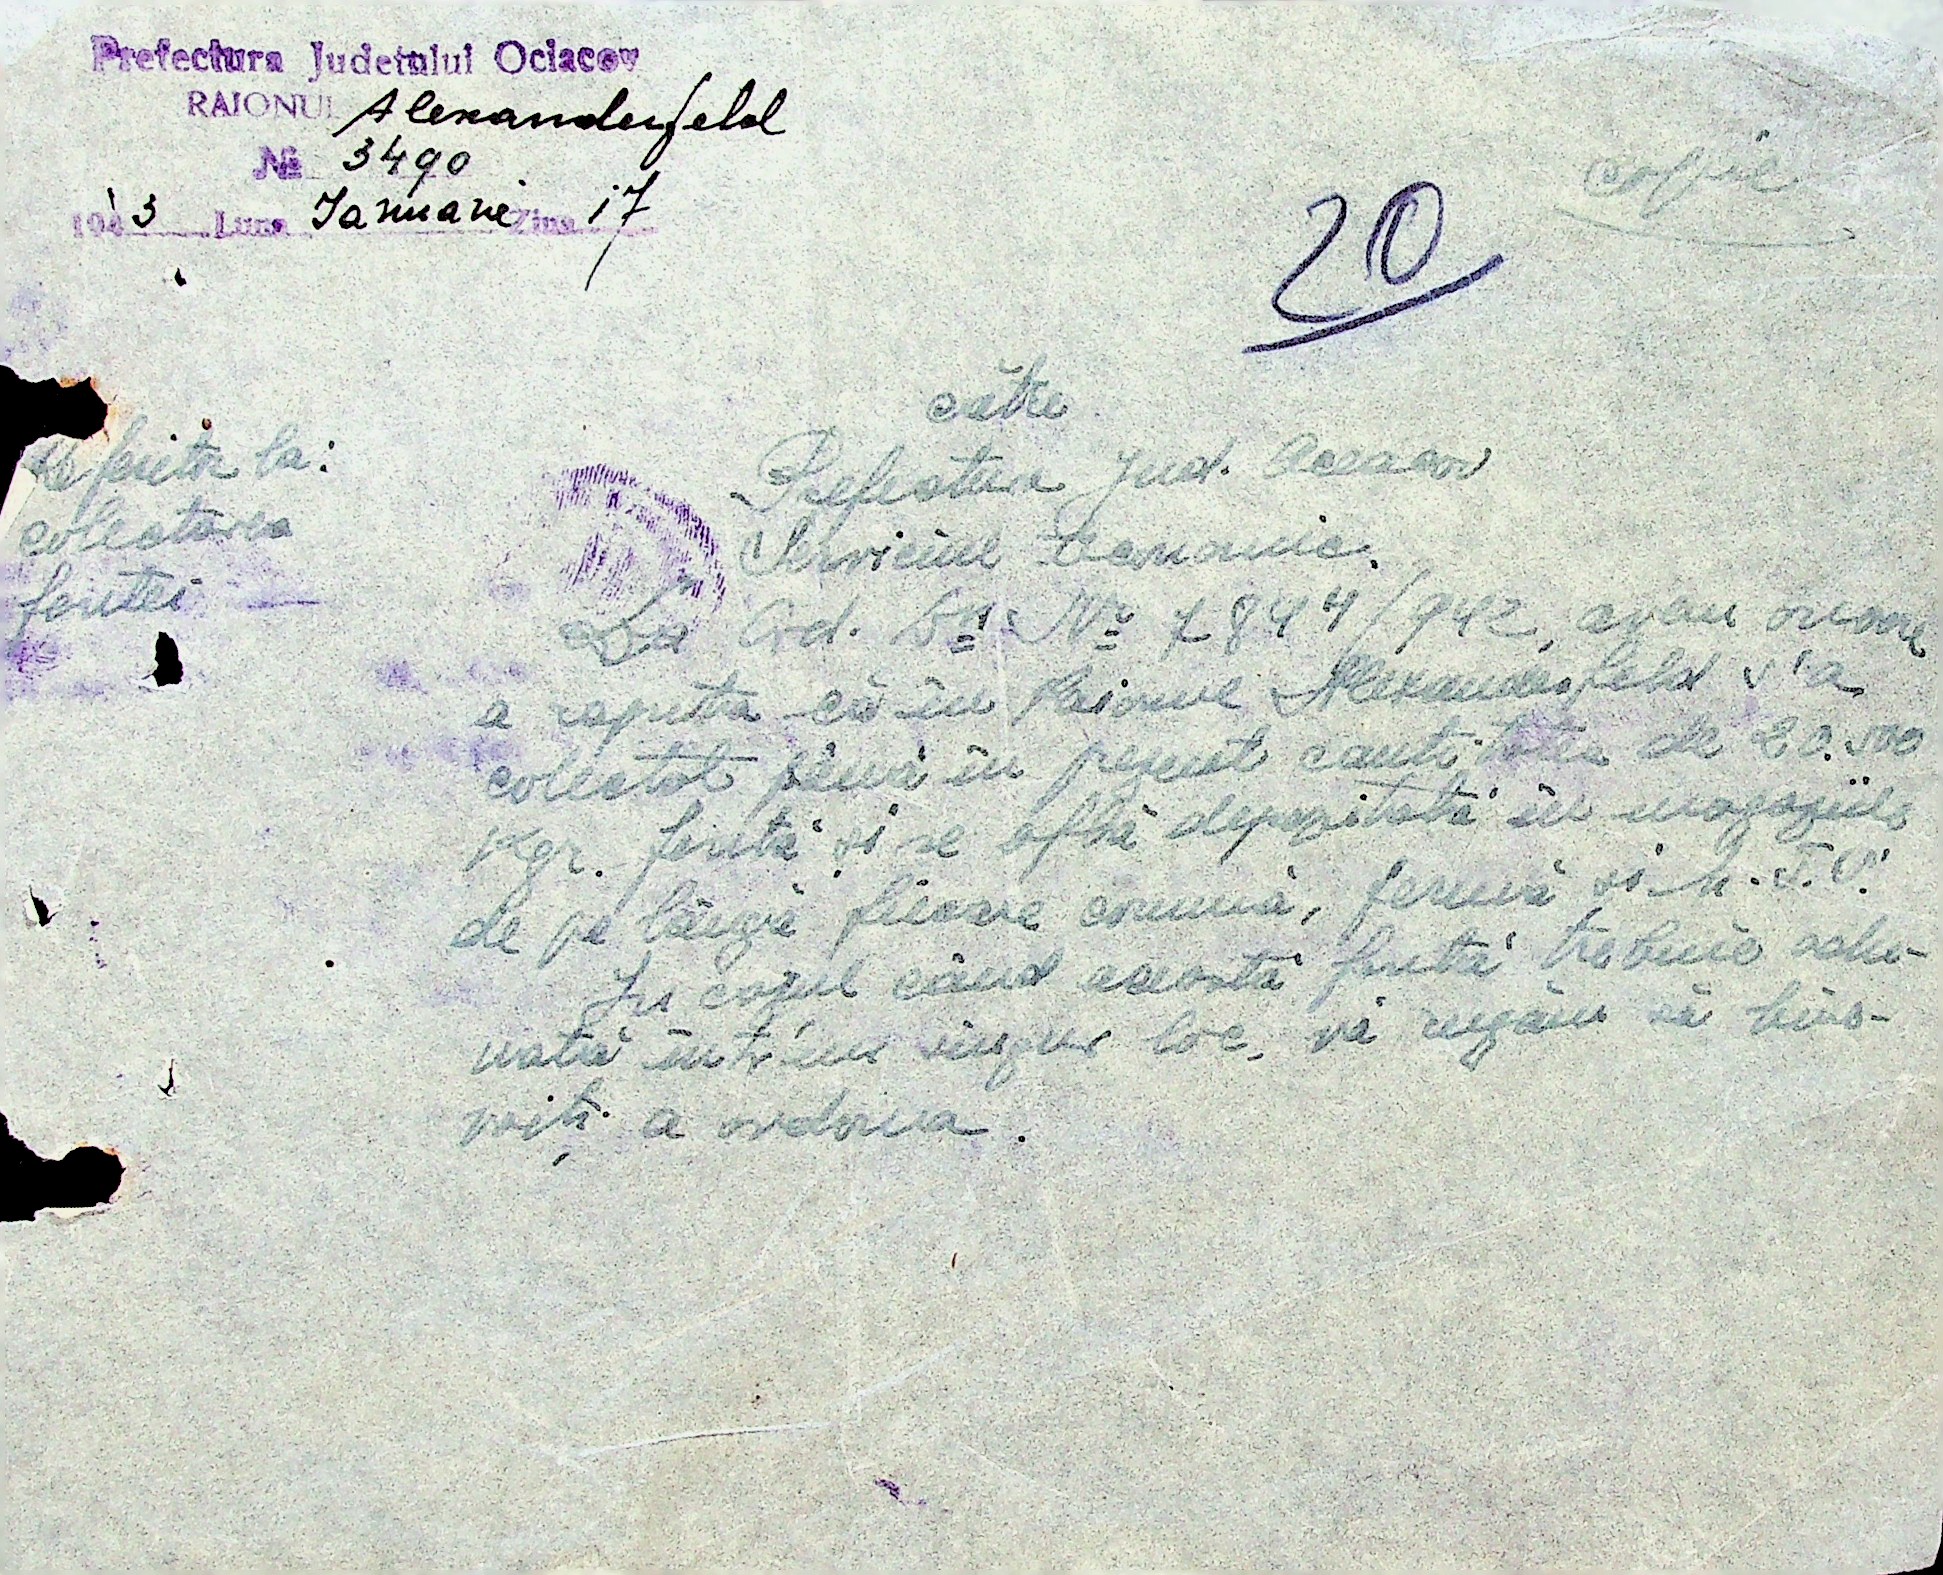 Prefectura Judetului Ociacov
RAIONUL Alexanderfeld
№ 3490
1943 Luna Ianuarie Ziua 17
copie
20
către
Prefectura Jud. Oceacov
Serviciul Economic.
Referitor la:
colectarea
fontei
La Ord. Dv. Nr. 7844/942, avem onoare
a raporta că în Raionul Alexanderfeld s'a
colectat până în prezent cantitatea de 20.500
Kgr. fontă și se află depozitată în magaziile
de pe lângă fiecare comună, fermă și
In cazul când aceasta fontă trebuie adu-
nată într'un singur loc, vă rugăm să bine-
voiți a ordona.